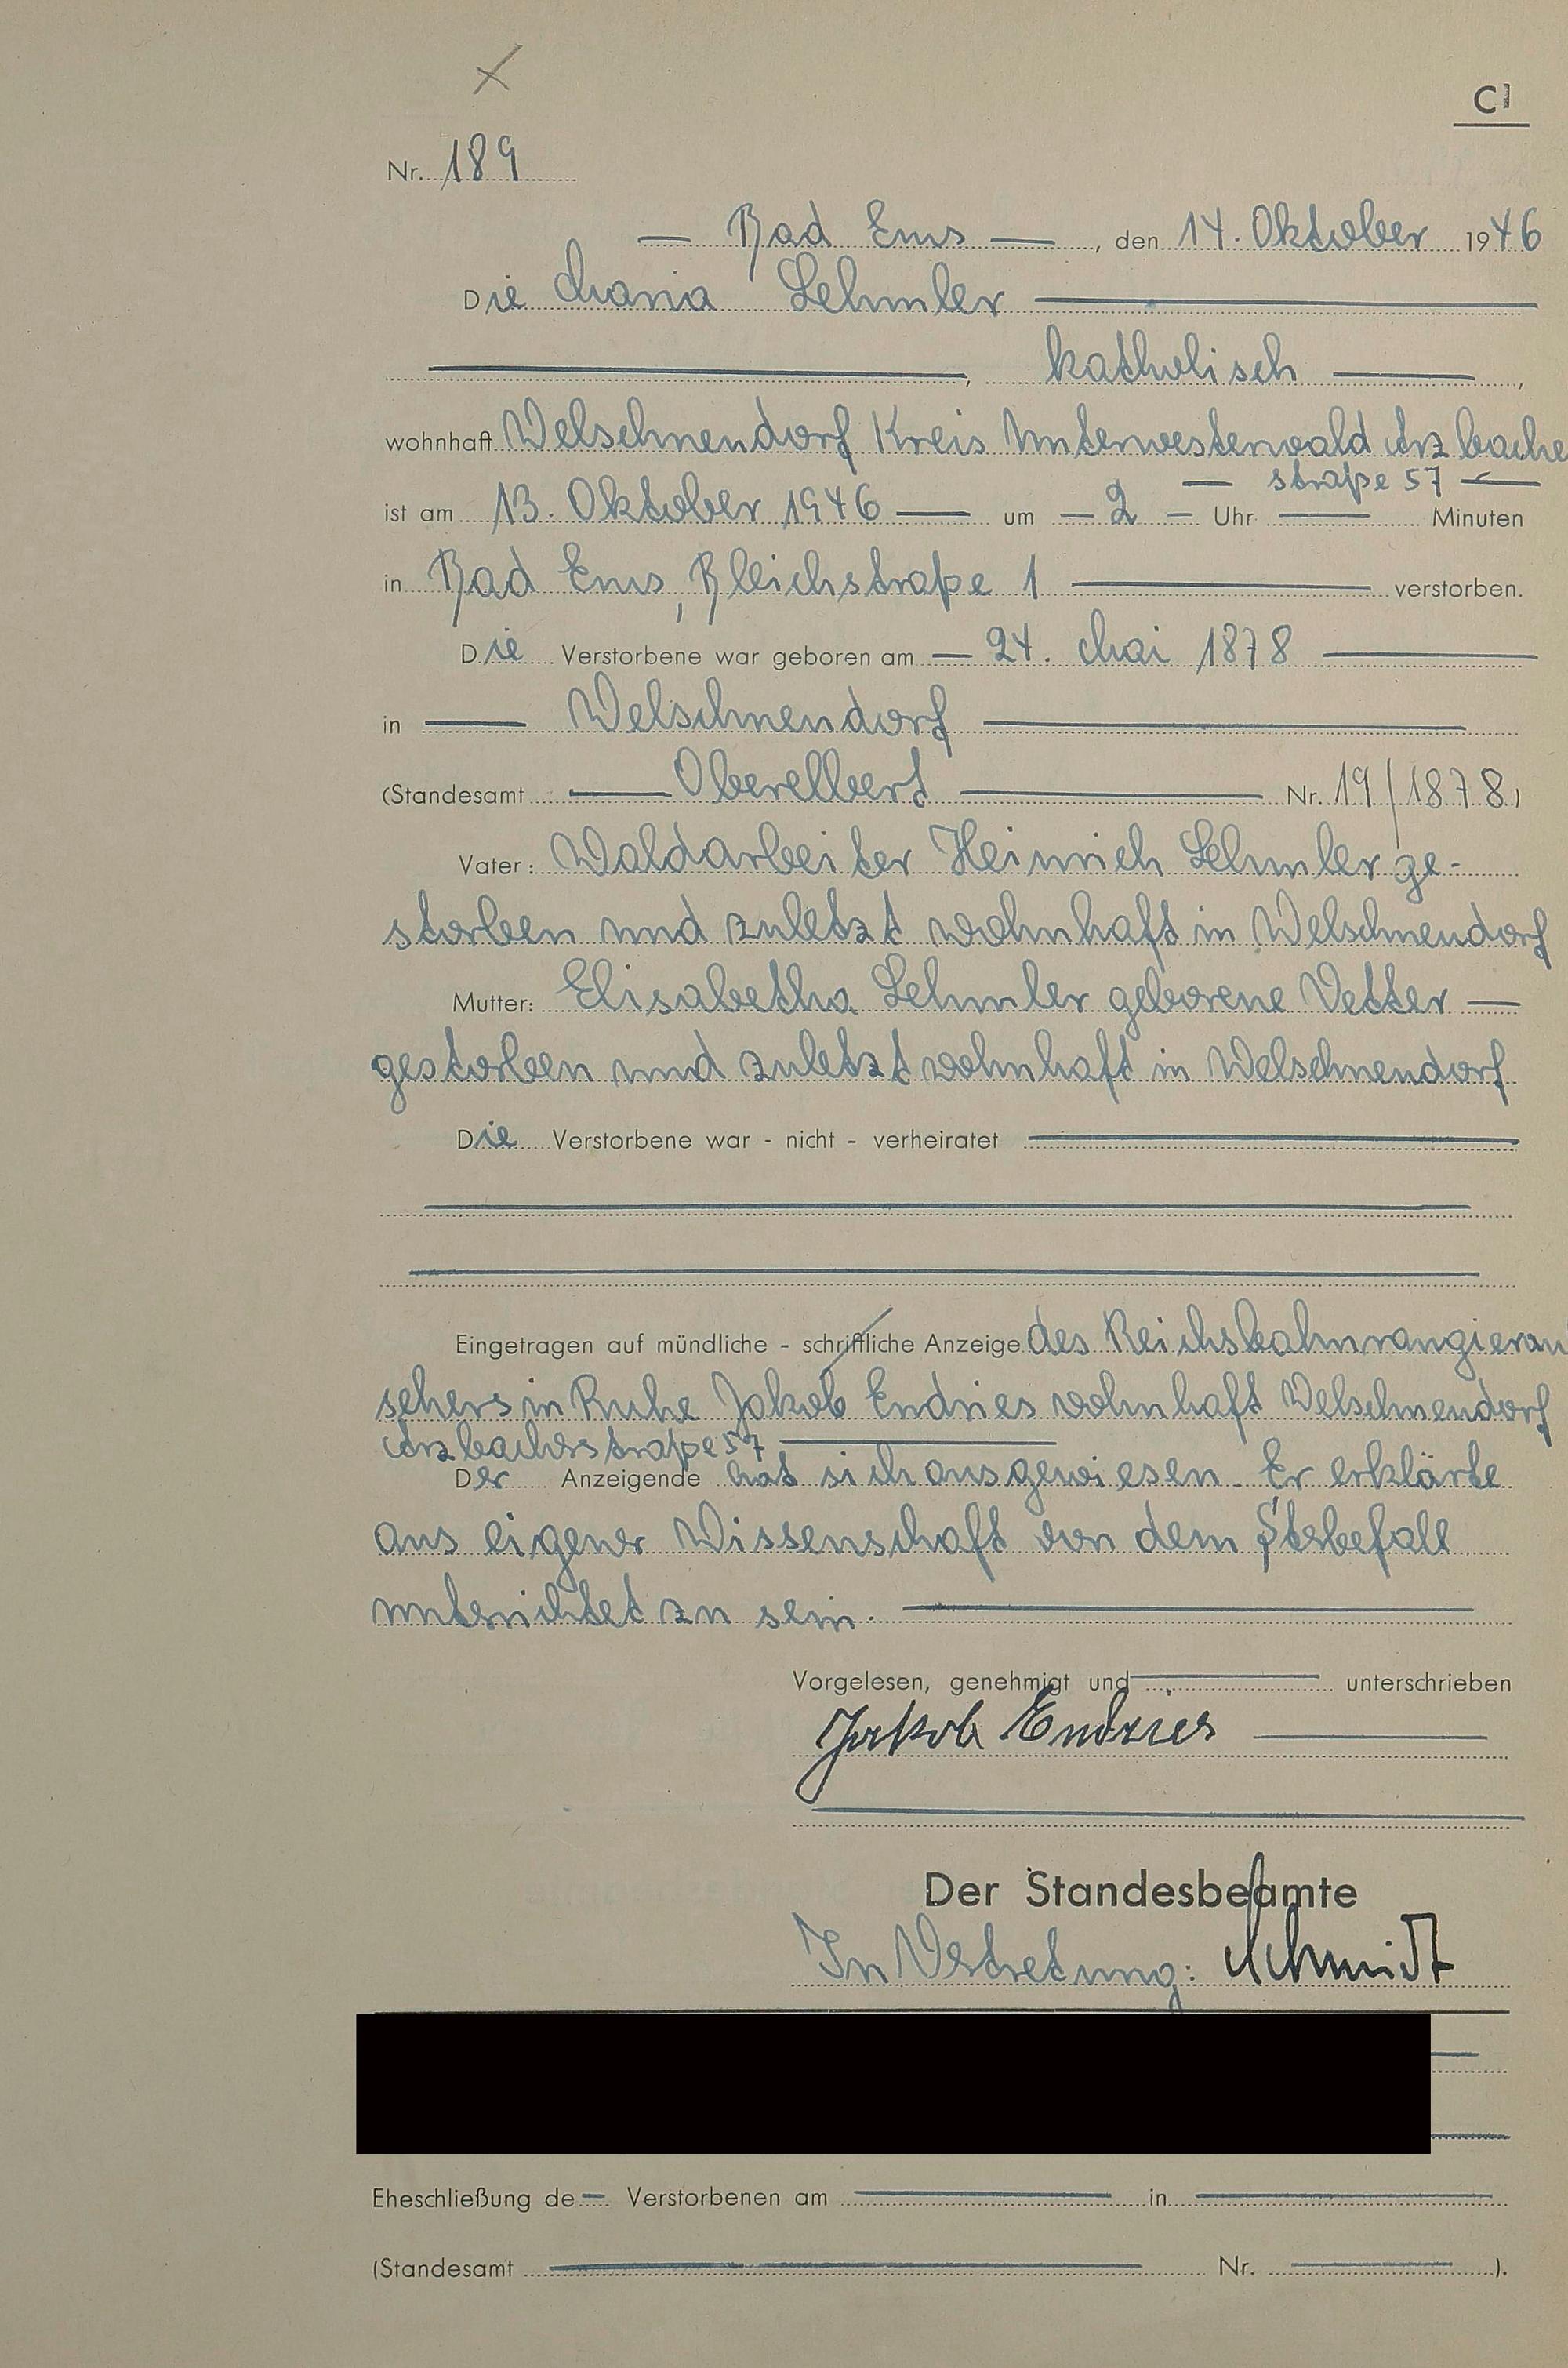 C
Nr. 189
Bad Ems, den 14. Oktober 1946
Die Maria Lehmler
, katholisch,
wohnhaft Welschneudorf Kreis Unterwesterwald Arzbacher
straße 57
ist am 13. Oktober 1946 um 2 Uhr Minuten
in Bad Ems, Bleichstraße 1 verstorben.
Die Verstorbene war geboren am 24. Mai 1878
in Welschneudorf
(Standesamt Oberelbert Nr. 19/1878)
Vater: Waldarbeiter Heinrich Lehmler ge-
storben und zuletzt wohnhaft in Welschneudorf
Mutter: Elisabetha Lehmler geborene Vetter
gestorben und zuletzt wohnhaft in Welschneudorf
Die Verstorbene war - nicht - verheiratet
Eingetragen auf mündliche - schriftliche Anzeige des Reichsbahnrangierauf
sehers in Ruhe Jakob Endries wohnhaft Welschneudorf
Arzbacherstraße 57
Der Anzeigende hat sich ausgewiesen. Er erklärte
aus eigener Wissenschaft von dem Sterbefall
unterrichtet zu sein.
Vorgelesen, genehmigt und unterschrieben
Jakob Endries
Der Standesbeamte
In Vertretung: Schmidt
Eheschließung de Verstorbenen am in
(Standesamt Nr. ).